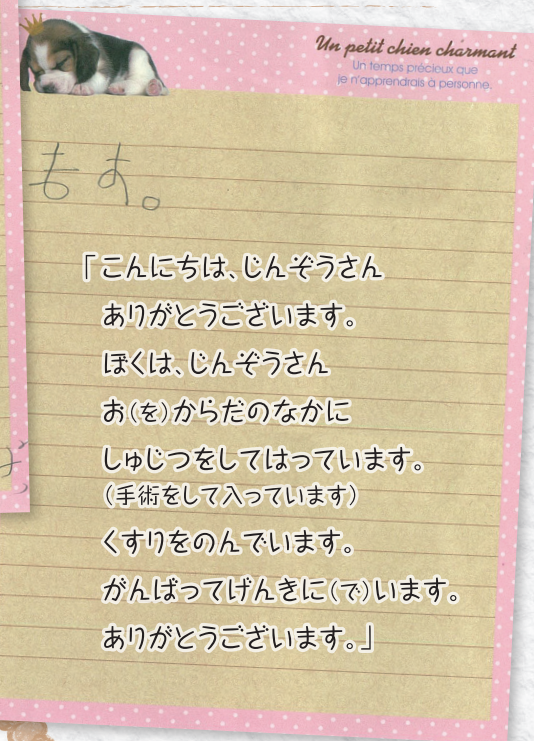 Un petit chien charmant
Un temps précieux que
je n'apprendrais à personne.
ます。
「こんにちは、じんぞうさん
ありがとうございます。
ぼくは、じんぞうさん
お(を)からだのなかに
しゅじつをしてはっています。
(手術をして入っています)
くすりをのんでいます。
がんばってげんきに(で)います。
ありがとうございます。」